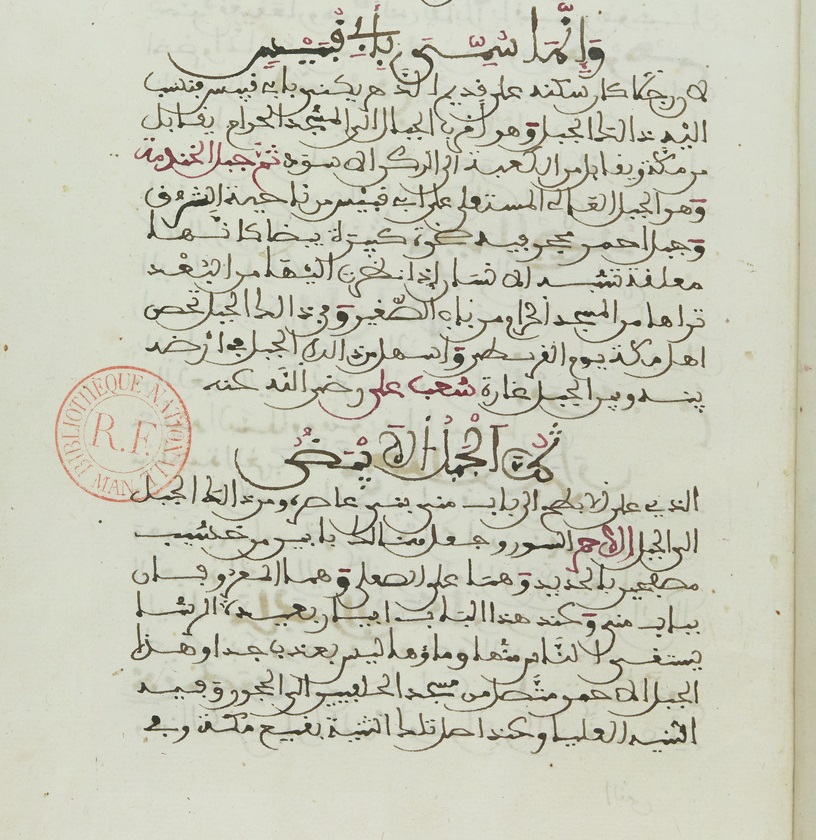 وَإِنَّمَا سُمِّيَ بِأَبِي قُبَيْسٍ
لان رجلا كان سكنه على قديم الدهر يكنى بابي قبيس فنسب
اليه ذالك الجبل وهو أقرب الجبال الى المسجد الحرام يقابل
من مكة ويقابل من الكعبة الى الركن الاسود ثم جبل الخندمة
وهو الجبل العالي المستعلي على ابي قبيس من ناحية الشرف
وجبل احمر محجر فيه صخرة كبيرة بيضا كانها
معلقة تشبه الانسان إذا نظرت اليها من البعد
تراها من المسجد الحرام من باب الصغير وفي ذالك الجبل تحصن
اهل مكة يوم القرمطي واسهل من ذالك الجبل في ارضه
بينه وبين الجبل غارة شعب علي رضي الله عنه
ثُمَّ الْجَبَلُ الأَبْيَضُ
الذي على الابطح الى باب منى بني عامر، ومن ذالك الجبل
الى الجبل الاحمر السور وجعل هنالك بابين من خشب
مصفحين بالحديد وهما على المعلى وهما المعروفان
بباب منى وعند هذا الباب ابيار بعيدة الرشا
يستقي الناس منها وماؤها ليس بعذب جدا وهذا
الجبل الاحمر متصل من مسجد الحلفيين الى الحجون وفيه
الثنية العليا وعند اصل تلك الثنية بقيع مكة وفي
R.F.
BIBLIOTHEQUE NATIONALE
MAN.